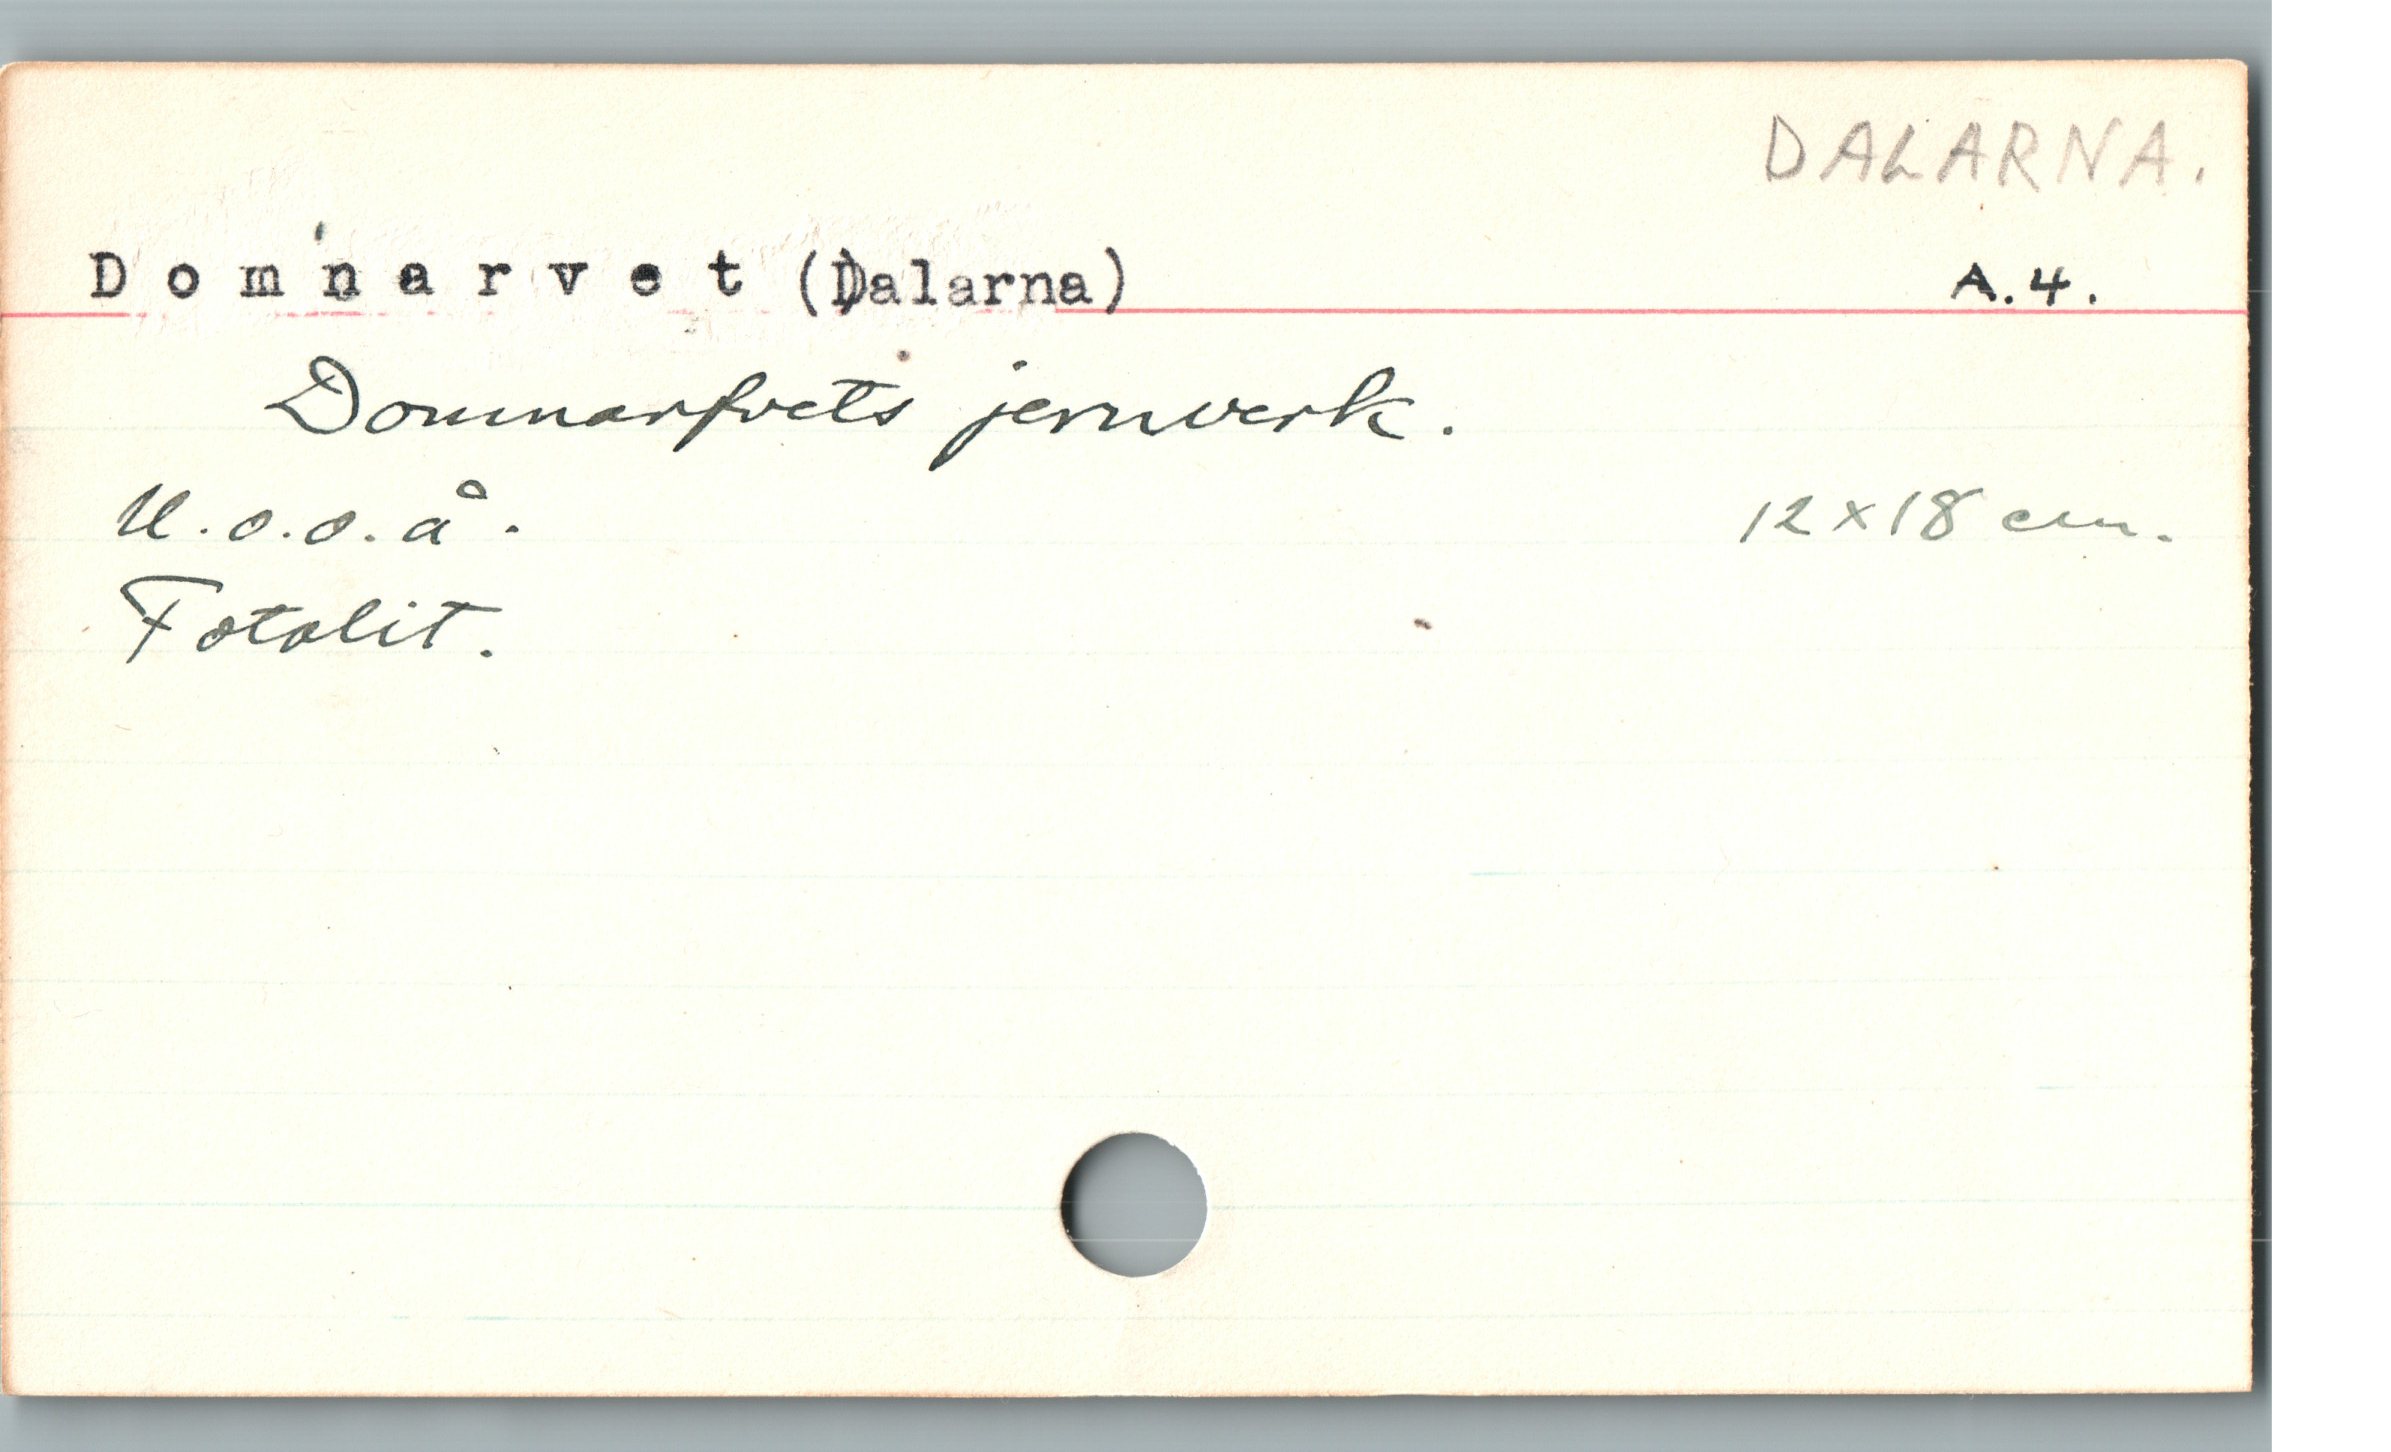 DALARNA.
Domnarvet (Dalarna) A.4.
Domnarfvets jernverk.
U.o.o.å. 12x18 cm.
Fotolit.